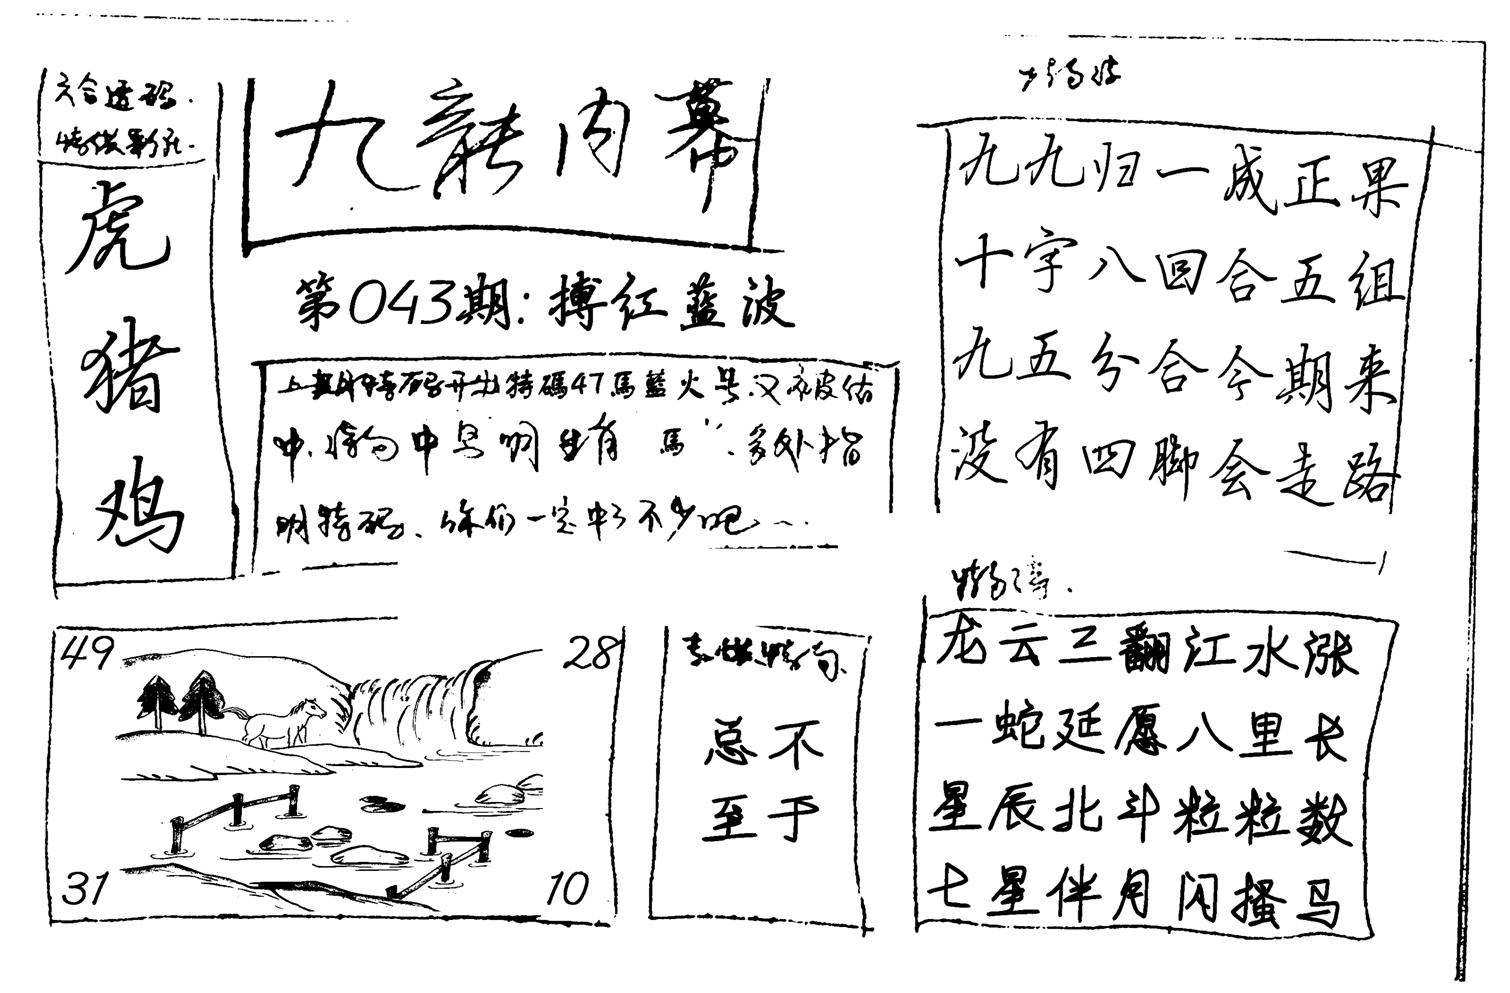 六合透码.
虎
猪
鸡
九龍内幕
第043期:搏红藍波
上期特码开出特碼47馬藍火号.又被估
中.特句中 明生肖"馬".多处指
明特码、你们一定中了不少吧...
九九归一成正果
十字八回合五组
九五分合今期来
没有四脚会走路
49
28
31
10
总不
至于
龙云三翻江水涨
一蛇延愿八里长
星辰北斗粒粒数
七星伴月闪搔马